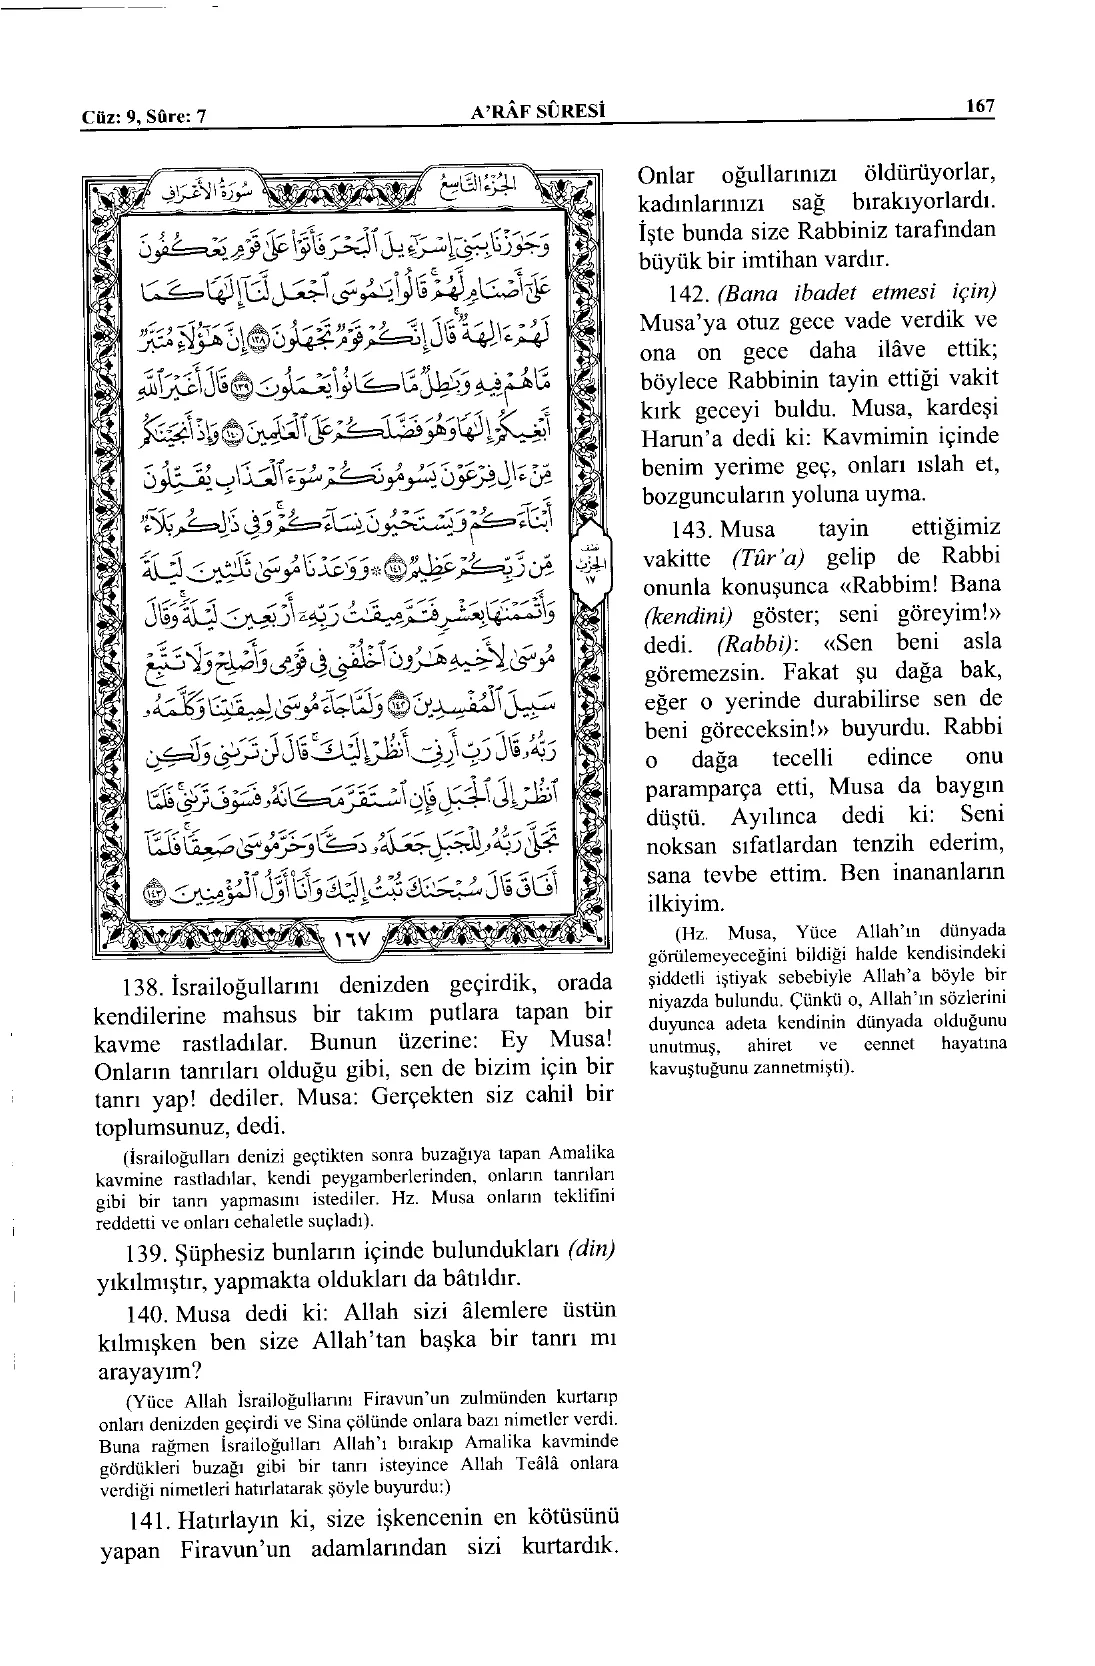 Cüz: 9, Sûre: 7
A'RÂF SÛRESİ
167
سورة الأعراف
الجزء التاسع
وَجَٰوَزْنَا بِبَنِىٓ إِسْرَٰٓءِيلَ ٱلْبَحْرَ فَأَتَوْا۟ عَلَىٰ قَوْمٍ يَعْكُفُونَ
عَلَىٰٓ أَصْنَامٍ لَّهُمْ ۚ قَالُوا۟ يَٰمُوسَى ٱجْعَل لَّنَآ إِلَٰهًا كَمَا
لَهُمْ ءَالِهَةٌ ۚ قَالَ إِنَّكُمْ قَوْمٌ تَجْهَلُونَ ١٣٨ إِنَّ هَٰٓؤُلَآءِ مُتَبَّرٌ
مَّا هُمْ فِيهِ وَبَٰطِلٌ مَّا كَانُوا۟ يَعْمَلُونَ ١٣٩ قَالَ أَغَيْرَ ٱللَّهِ
أَبْغِيكُمْ إِلَٰهًا وَهُوَ فَضَّلَكُمْ عَلَى ٱلْعَٰلَمِينَ ١٤٠ وَإِذْ أَنجَيْنَٰكُم
مِّنْ ءَالِ فِرْعَوْنَ يَسُومُونَكُمْ سُوٓءَ ٱلْعَذَابِ يُقَتِّلُونَ
أَبْنَآءَكُمْ وَيَسْتَحْيُونَ نِسَآءَكُمْ ۚ وَفِى ذَٰلِكُم بَلَآءٌ
مِّن رَّبِّكُمْ عَظِيمٌ ١٤١ ۞ وَوَٰعَدْنَا مُوسَىٰ ثَلَٰثِينَ لَيْلَةً
وَأَتْمَمْنَٰهَا بِعَشْرٍ فَتَمَّ مِيقَٰتُ رَبِّهِۦٓ أَرْبَعِينَ لَيْلَةً ۚ وَقَالَ
مُوسَىٰ لِأَخِيهِ هَٰرُونَ ٱخْلُفْنِى فِى قَوْمِى وَأَصْلِحْ وَلَا تَتَّبِعْ
سَبِيلَ ٱلْمُفْسِدِينَ ١٤٢ وَلَمَّا جَآءَ مُوسَىٰ لِمِيقَٰتِنَا وَكَلَّمَهُۥ
رَبُّهُۥ قَالَ رَبِّ أَرِنِىٓ أَنظُرْ إِلَيْكَ ۚ قَالَ لَن تَرَىٰنِى وَلَٰكِنِ
ٱنظُرْ إِلَى ٱلْجَبَلِ فَإِنِ ٱسْتَقَرَّ مَكَانَهُۥ فَسَوْفَ تَرَىٰنِى ۚ فَلَمَّا
تَجَلَّىٰ رَبُّهُۥ لِلْجَبَلِ جَعَلَهُۥ دَكًّا وَخَرَّ مُوسَىٰ صَعِقًا ۚ فَلَمَّآ
أَفَاقَ قَالَ سُبْحَٰنَكَ تُبْتُ إِلَيْكَ وَأَنَا۠ أَوَّلُ ٱلْمُؤْمِنِينَ ١٤٣
نصف
الحزب
١٧
١٦٧
138. İsrailoğullarını denizden geçirdik, orada
kendilerine mahsus bir takım putlara tapan bir
kavme rastladılar. Bunun üzerine: Ey Musa!
Onların tanrıları olduğu gibi, sen de bizim için bir
tanrı yap! dediler. Musa: Gerçekten siz cahil bir
toplumsunuz, dedi.
(İsrailoğulları denizi geçtikten sonra buzağıya tapan Amalika
kavmine rastladılar, kendi peygamberlerinden, onların tanrıları
gibi bir tanrı yapmasını istediler. Hz. Musa onların teklifini
reddetti ve onları cehaletle suçladı).
139. Şüphesiz bunların içinde bulundukları (din)
yıkılmıştır, yapmakta oldukları da bâtıldır.
140. Musa dedi ki: Allah sizi âlemlere üstün
kılmışken ben size Allah'tan başka bir tanrı mı
arayayım?
(Yüce Allah İsrailoğullarını Firavun'un zulmünden kurtarıp
onları denizden geçirdi ve Sina çölünde onlara bazı nimetler verdi.
Buna rağmen İsrailoğulları Allah'ı bırakıp Amalika kavminde
gördükleri buzağı gibi bir tanrı isteyince Allah Teâlâ onlara
verdiği nimetleri hatırlatarak şöyle buyurdu:)
141. Hatırlayın ki, size işkencenin en kötüsünü
yapan Firavun'un adamlarından sizi kurtardık.
Onlar oğullarınızı öldürüyorlar,
kadınlarınızı sağ bırakıyorlardı.
İşte bunda size Rabbiniz tarafından
büyük bir imtihan vardır.
142. (Bana ibadet etmesi için)
Musa'ya otuz gece vade verdik ve
ona on gece daha ilâve ettik;
böylece Rabbinin tayin ettiği vakit
kırk geceyi buldu. Musa, kardeşi
Harun'a dedi ki: Kavmimin içinde
benim yerime geç, onları ıslah et,
bozguncuların yoluna uyma.
143. Musa tayin ettiğimiz
vakitte (Tûr'a) gelip de Rabbi
onunla konuşunca «Rabbim! Bana
(kendini) göster; seni göreyim!»
dedi. (Rabbi): «Sen beni asla
göremezsin. Fakat şu dağa bak,
eğer o yerinde durabilirse sen de
beni göreceksin!» buyurdu. Rabbi
o dağa tecelli edince onu
paramparça etti, Musa da baygın
düştü. Ayılınca dedi ki: Seni
noksan sıfatlardan tenzih ederim,
sana tevbe ettim. Ben inananların
ilkiyim.
(Hz. Musa, Yüce Allah'ın dünyada
görülemeyeceğini bildiği halde kendisindeki
şiddetli iştiyak sebebiyle Allah'a böyle bir
niyazda bulundu. Çünkü o, Allah'ın sözlerini
duyunca adeta kendinin dünyada olduğunu
unutmuş, ahiret ve cennet hayatına
kavuştuğunu zannetmişti).